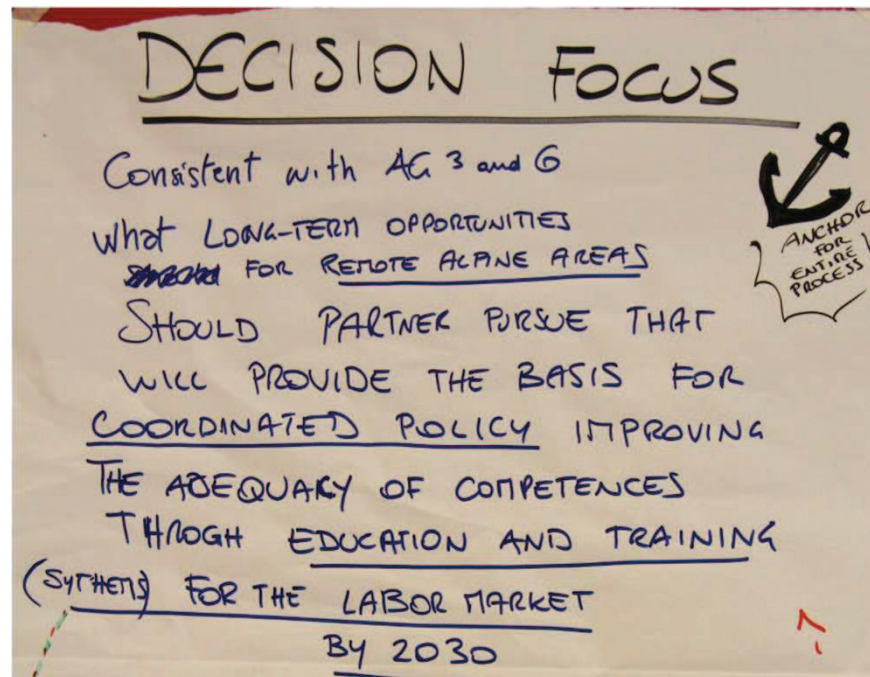 DECISION FOCUS
Consistent with AG 3 and 6
What LONG-TERM OPPORTUNITIES
FOR REMOTE ALPINE AREAS
SHOULD PARTNER PURSUE THAT
WILL PROVIDE THE BASIS FOR
COORDINATED POLICY IMPROVING
THE ADEQUAKY OF COMPETENCES
THROGH EDUCATION AND TRAINING
(SYTHEMS) FOR THE LABOR MARKET
BY 2030
ANCHOR
FOR
ENTIRE
PROCESS